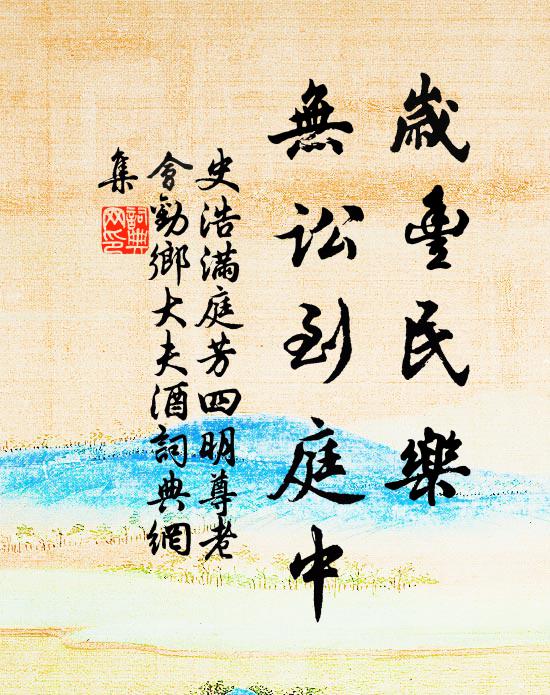 歲豊民樂
無訟到庭中
史浩滿庭芳四明尊老
會勸鄉大夫酒詞典網
集
詞典
网印